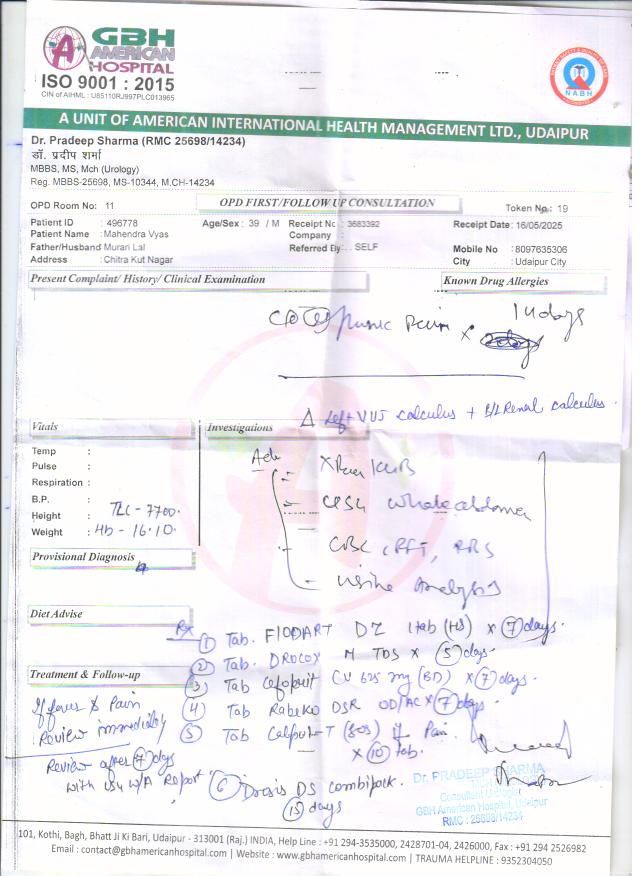 GBH
AMERICAN
HOSPITAL
ISO 9001 : 2015
CIN of AIHML : U85110RJ997PLC013965
NABH
A UNIT OF AMERICAN INTERNATIONAL HEALTH MANAGEMENT LTD., UDAIPUR
Dr. Pradeep Sharma (RMC 25698/14234)
डॉ. प्रदीप शर्मा
MBBS, MS, Mch (Urology)
Reg. MBBS-25698, MS-10344, M.CH-14234
OPD Room No: 11 OPD FIRST/FOLLOW UP CONSULTATION Token No: 19
Patient ID : 496778 Age/Sex : 39 / M Receipt No : 3683392 Receipt Date: 16/05/2025
Patient Name : Mahendra Vyas Company :
Father/Husband Murari Lal Referred By : . SELF Mobile No : 8097635306
Address : Chitra Kut Nagar City : Udaipur City
Present Complaint/ History/ Clinical Examination Known Drug Allergies
Pain x 14 days
Δ Left VUJ calculus + B/L Renal calculus.
Vitals Investigations
Temp :
Pulse :
Respiration :
B.P. :
Height : TLC - 7700.
Weight : Hb - 16.10.
Adv
Xray KUB
USG whole abdomen
CBC, RFT, RBS
Urine Analysis
Provisional Diagnosis
Diet Advise
Rx
1 Tab. DZ 1tab (HS) x 7 days.
2 Tab. M TDS x 5 days.
3 Tab CV 625 mg (BD) x 7 days.
Treatment & Follow-up
4 Tab DSR OD/AC x 7 days.
5 Tab (SOS) if Pain
x 10 tab.
If fever & Pain
Review immediately
Review after 7 days
with USG W/A Report
6 DS combipack.
15 days
Dr. PRADEEP SHARMA
Consultant Urologist
GBH American Hospital, Udaipur
RMC : 25698/14234
101, Kothi, Bagh, Bhatt Ji Ki Bari, Udaipur - 313001 (Raj.) INDIA, Help Line : +91 294-3535000, 2428701-04, 2426000, Fax : +91 294 2526982
Email : contact@gbhamericanhospital.com | Website : www.gbhamericanhospital.com | TRAUMA HELPLINE : 9352304050